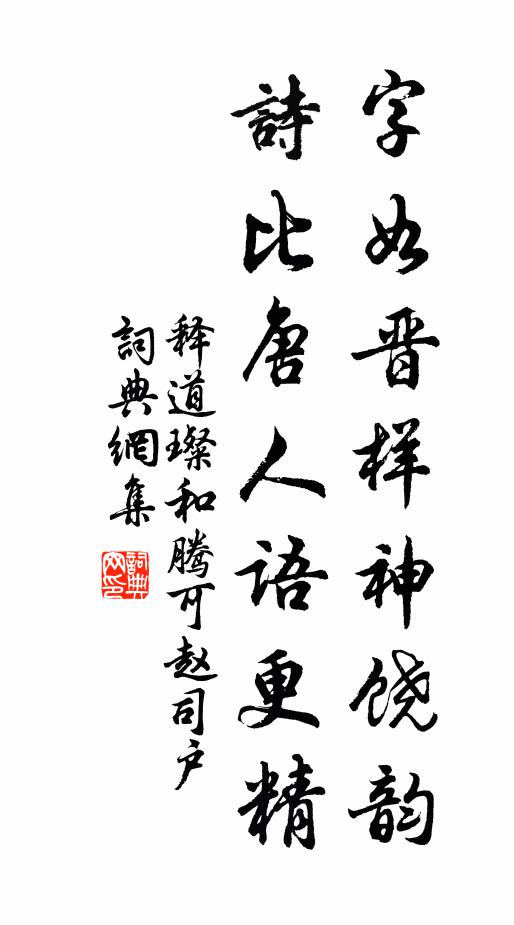 字如晋样神饶韵
詩比唐人语更精
释道璨和腾可赵司户
詞典網集
詞典网印